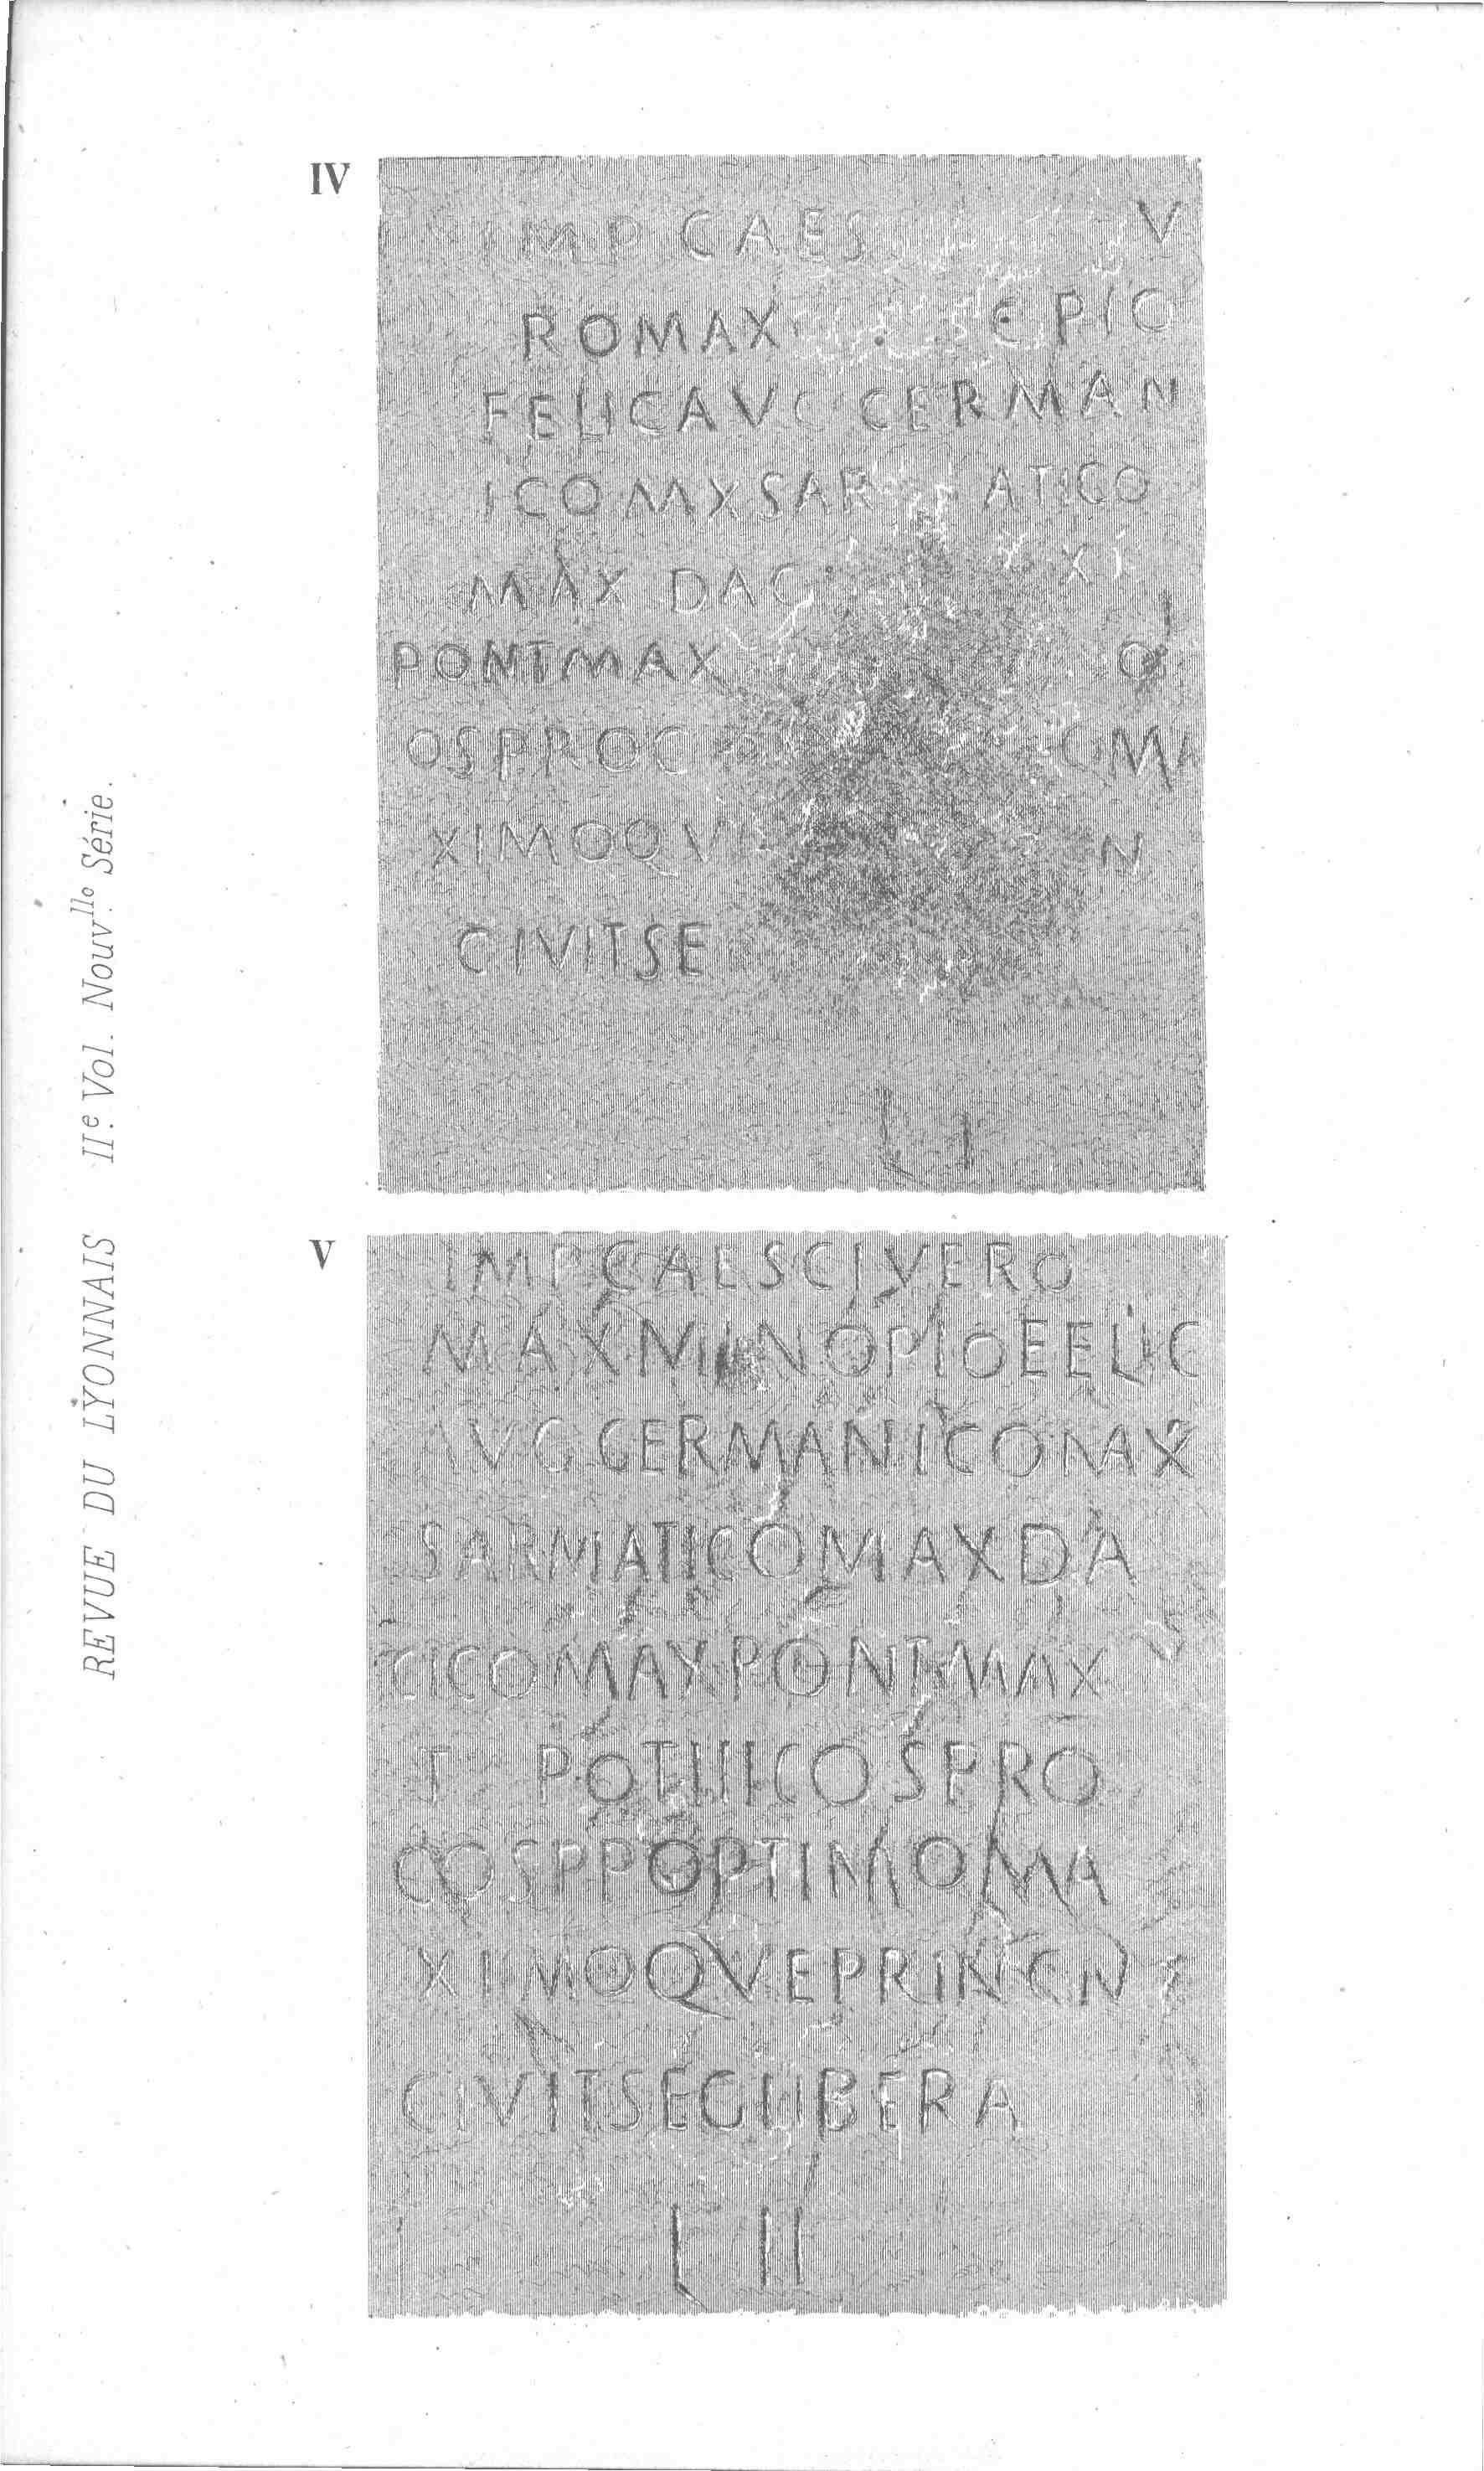 REVUE DU LYONNAIS IIe. Vol. Nouvlle. Série.
IV
IMP CAES V
ROMAX E PIO
FELICAVC CERMAN
ICOMXSAR ATICO
MAX DAC XI
PONTMAX O
OSPROC OMA
XIMOQV N
CIVITSE
L I
V
IMPCAESCIVERO
MAXMINOPIOEELIC
AVG GERMANICOMX
SARMATICOMAXDA
CICOMAXPONTMAX
T POTIIICOSPRO
COSPPOPTIMOMA
XIMOQVEPRINCN
CIVITSEGLIBERA
L II